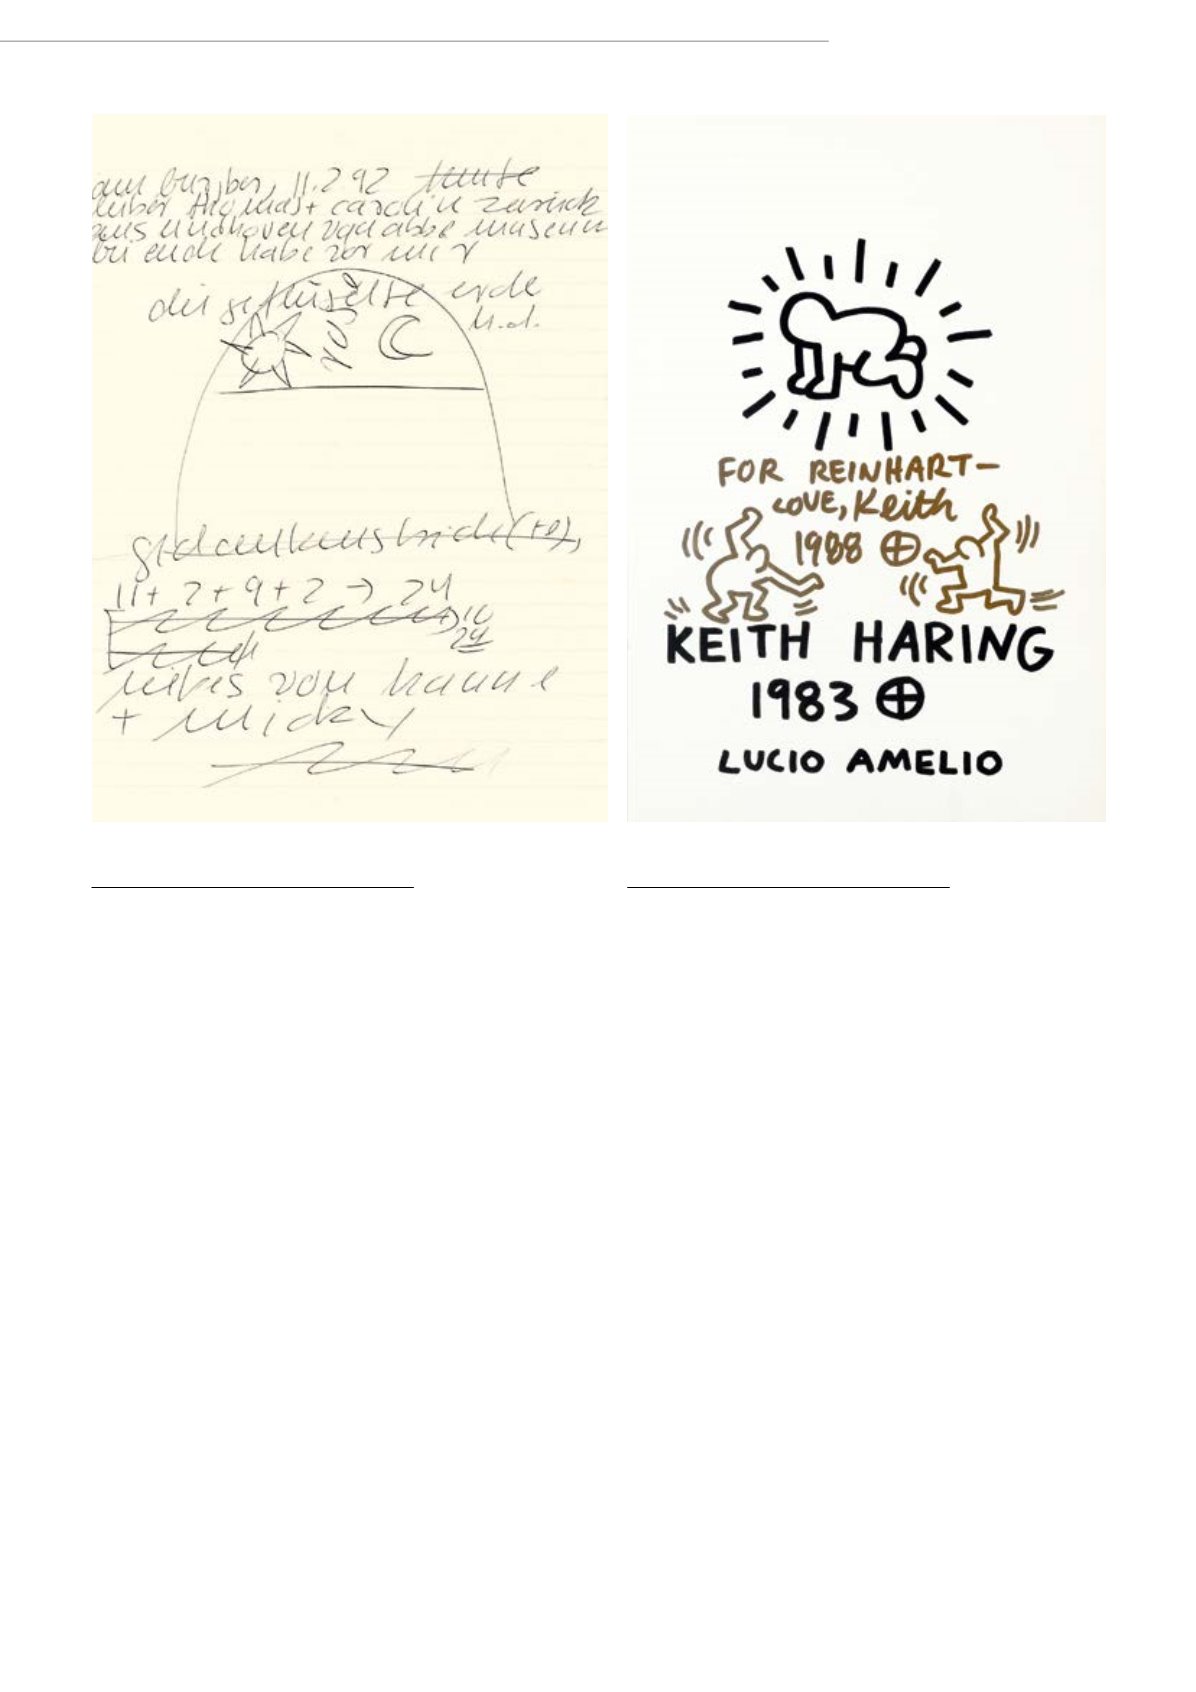 11.2 92
lieber thomas + carolin zurück
aus eindhoven van abbe museum
habe vor mir
die geflügelte erde
u.d.
11 + 2 + 9 + 2 → 24
10
24
liebes von hanne
+ micky
FOR REINHART—
LOVE, Keith
1988
KEITH HARING
1983
LUCIO AMELIO